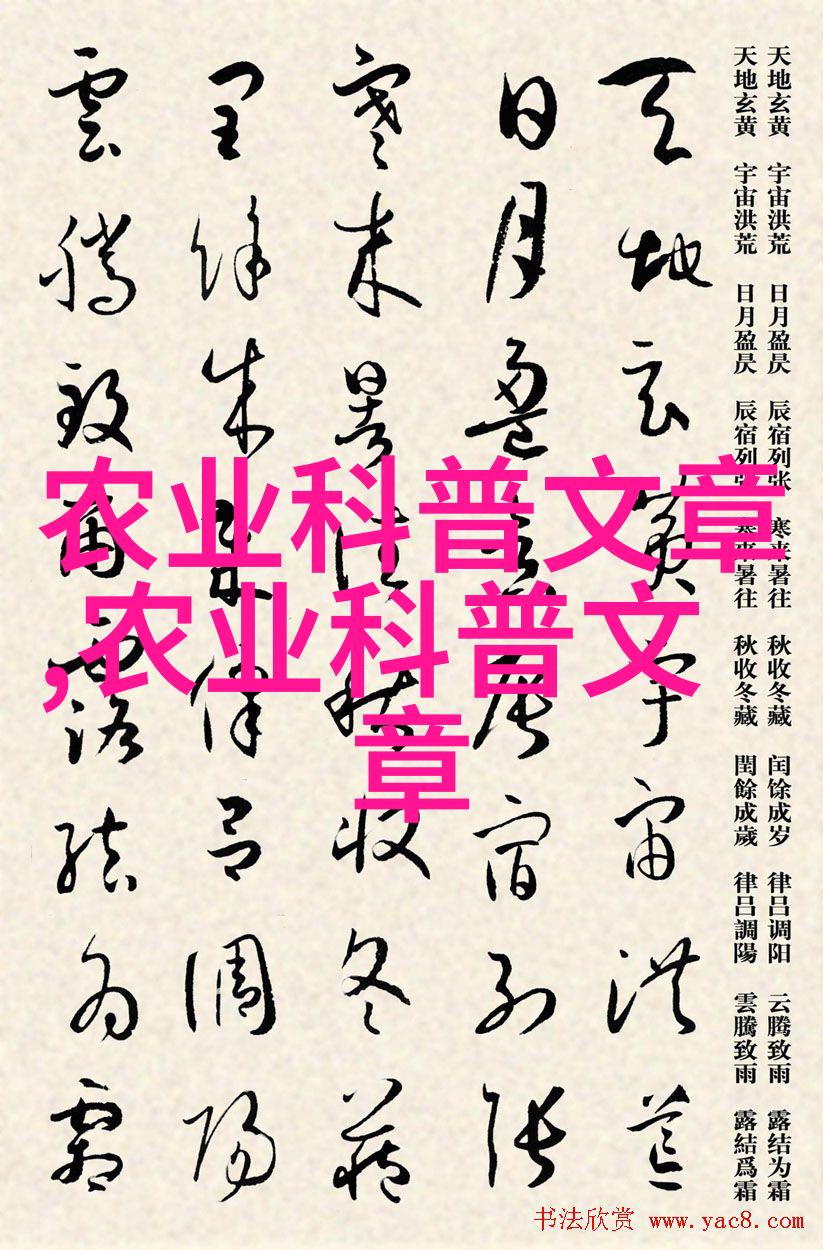 天地玄黄 宇宙洪荒 日月盈昃 辰宿列张 寒来暑往 秋收冬藏 闰馀成岁 律吕调阳 云腾致雨 露结为霜
天地玄黄 宇宙洪荒 日月盈昃 辰宿列張 寒來暑往 秋收冬藏 閏餘成歲 律吕調陽 雲騰致雨 露結爲霜
天地玄黄宇宙洪荒
日月盈昃辰宿列張
寒来暑往秋收冬藏
閏餘成歲律吕調陽
雲騰致雨露結為霜
农业科普文章
,农业科普文
章
书法欣赏 www.yac8.com